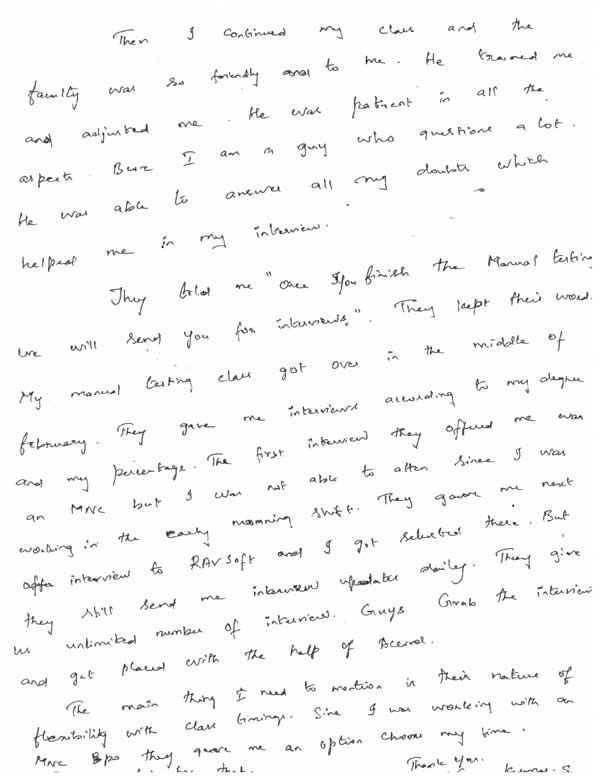 Then I continued my class and the
faculty was so friendly and to me. He trained me
and adjusted me. He was patient in all the
aspects. Bcoz I am a guy who questions a lot.
He was able to answer all my doubts which
helped me in my interview.
They told me "once you finish the Manual testing
we will send you for interviews". They kept their word.
My manual testing class got over in the middle of
february. They gave me interviews according to my degree
and my percentage. The first interview they offered me was
an MNC but I was not able to atten since I was
working in the early morning shift. They gave me next
interview to RAVSoft and I got selected there. But
they still send me interview updates daily. They give
us unlimited number of interview. Guys Grab the interview
and get placed with the help of
The main thing I need to mention is their nature of
flexibility with class timings. Sine I was working with an
MNC Bpo they gave me an option choose my time.
Thank You.